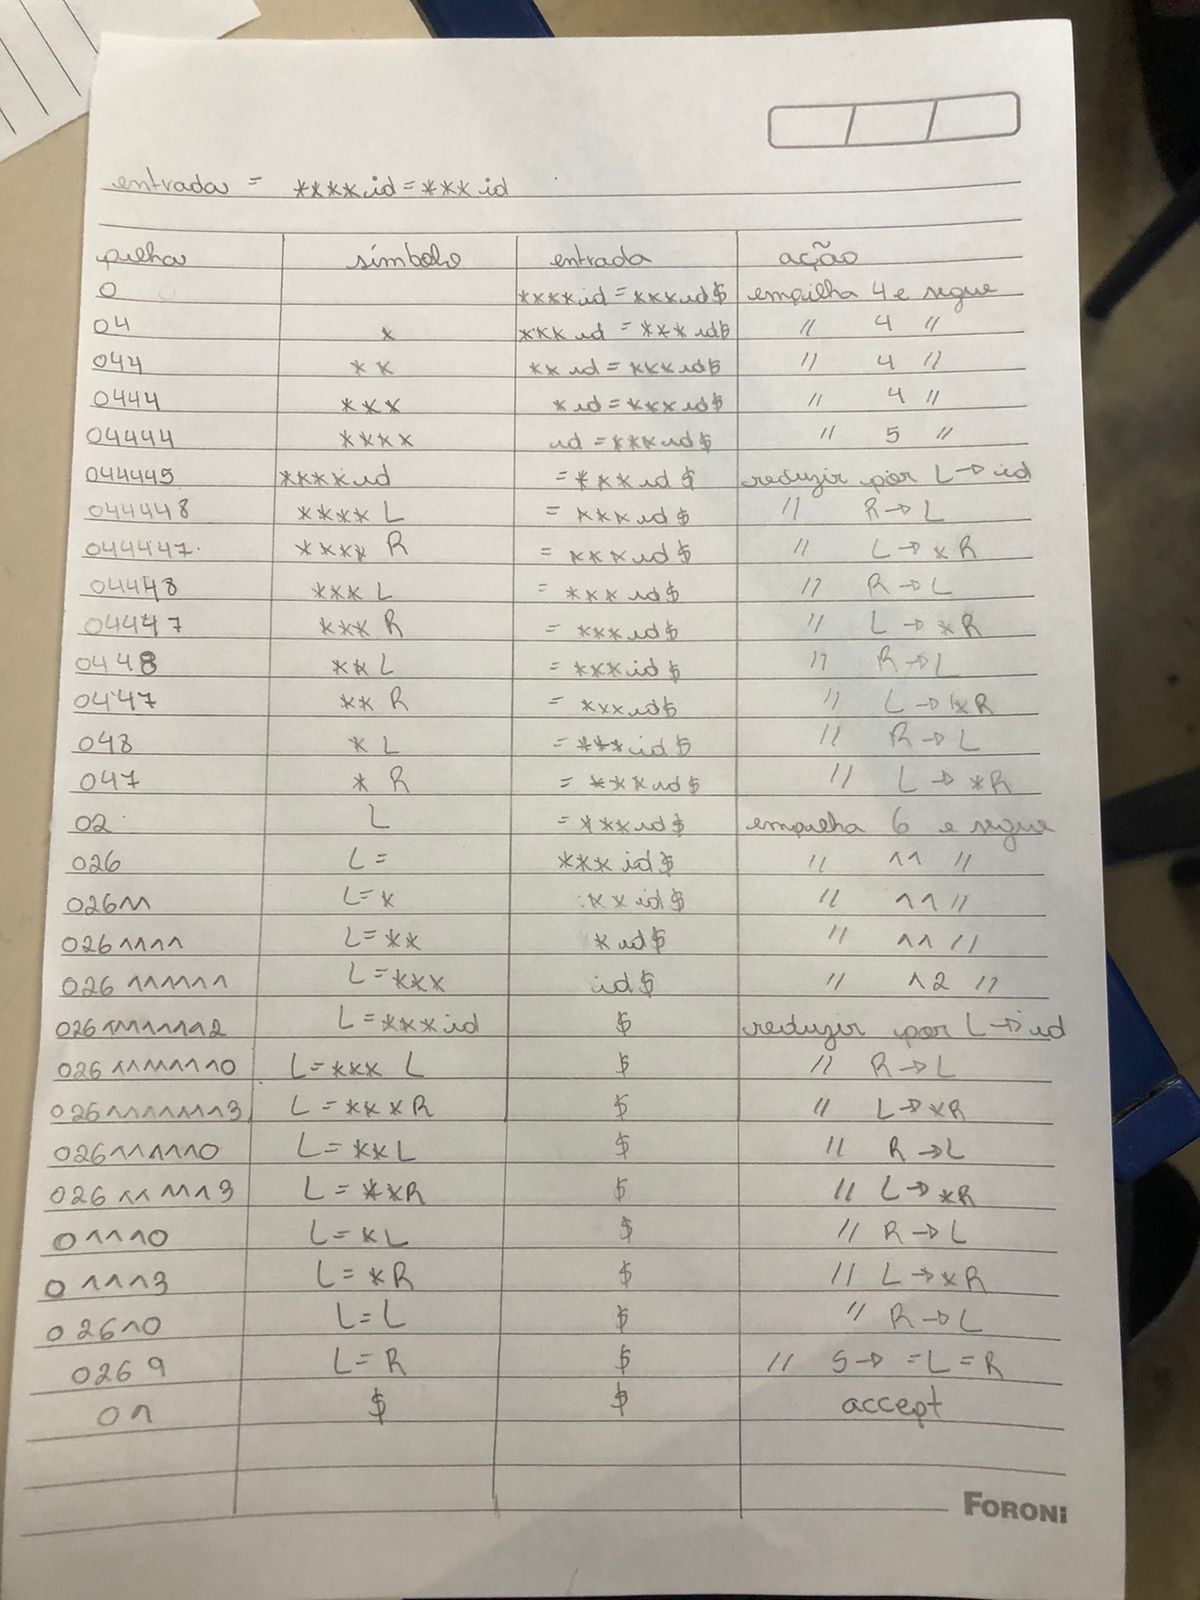 entrada = ****id=***id
pilha símbolo entrada ação
0 ****id=***id$ empilha 4 e segue
04 * ***id=***id$ // 4 //
044 ** **id=***id$ // 4 //
0444 *** *id=***id$ // 4 //
04444 **** id=***id$ // 5 //
044445 ****id =***id$ reduzir por L→id
044448 ****L =***id$ // R→L
044447 ****R =***id$ // L→*R
04448 ***L =***id$ // R→L
04447 ***R =***id$ // L→*R
0448 **L =***id$ // R→L
0447 **R =***id$ // L→*R
048 *L =***id$ // R→L
047 *R =***id$ // L→*R
02 L =***id$ empilha 6 e segue
026 L= ***id$ // 11 //
02611 L=* **id$ // 11 //
0261111 L=** *id$ // 11 //
026111111 L=*** id$ // 12 //
02611111112 L=***id $ reduzir por L→id
02611111110 L=***L $ // R→L
02611111113 L=***R $ // L→*R
026111110 L=**L $ // R→L
026111113 L=**R $ // L→*R
011110 L=*L $ // R→L
011113 L=*R $ // L→*R
02610 L=L $ // R→L
0269 L=R $ // S→=L=R
01 $ $ accept
FORONI